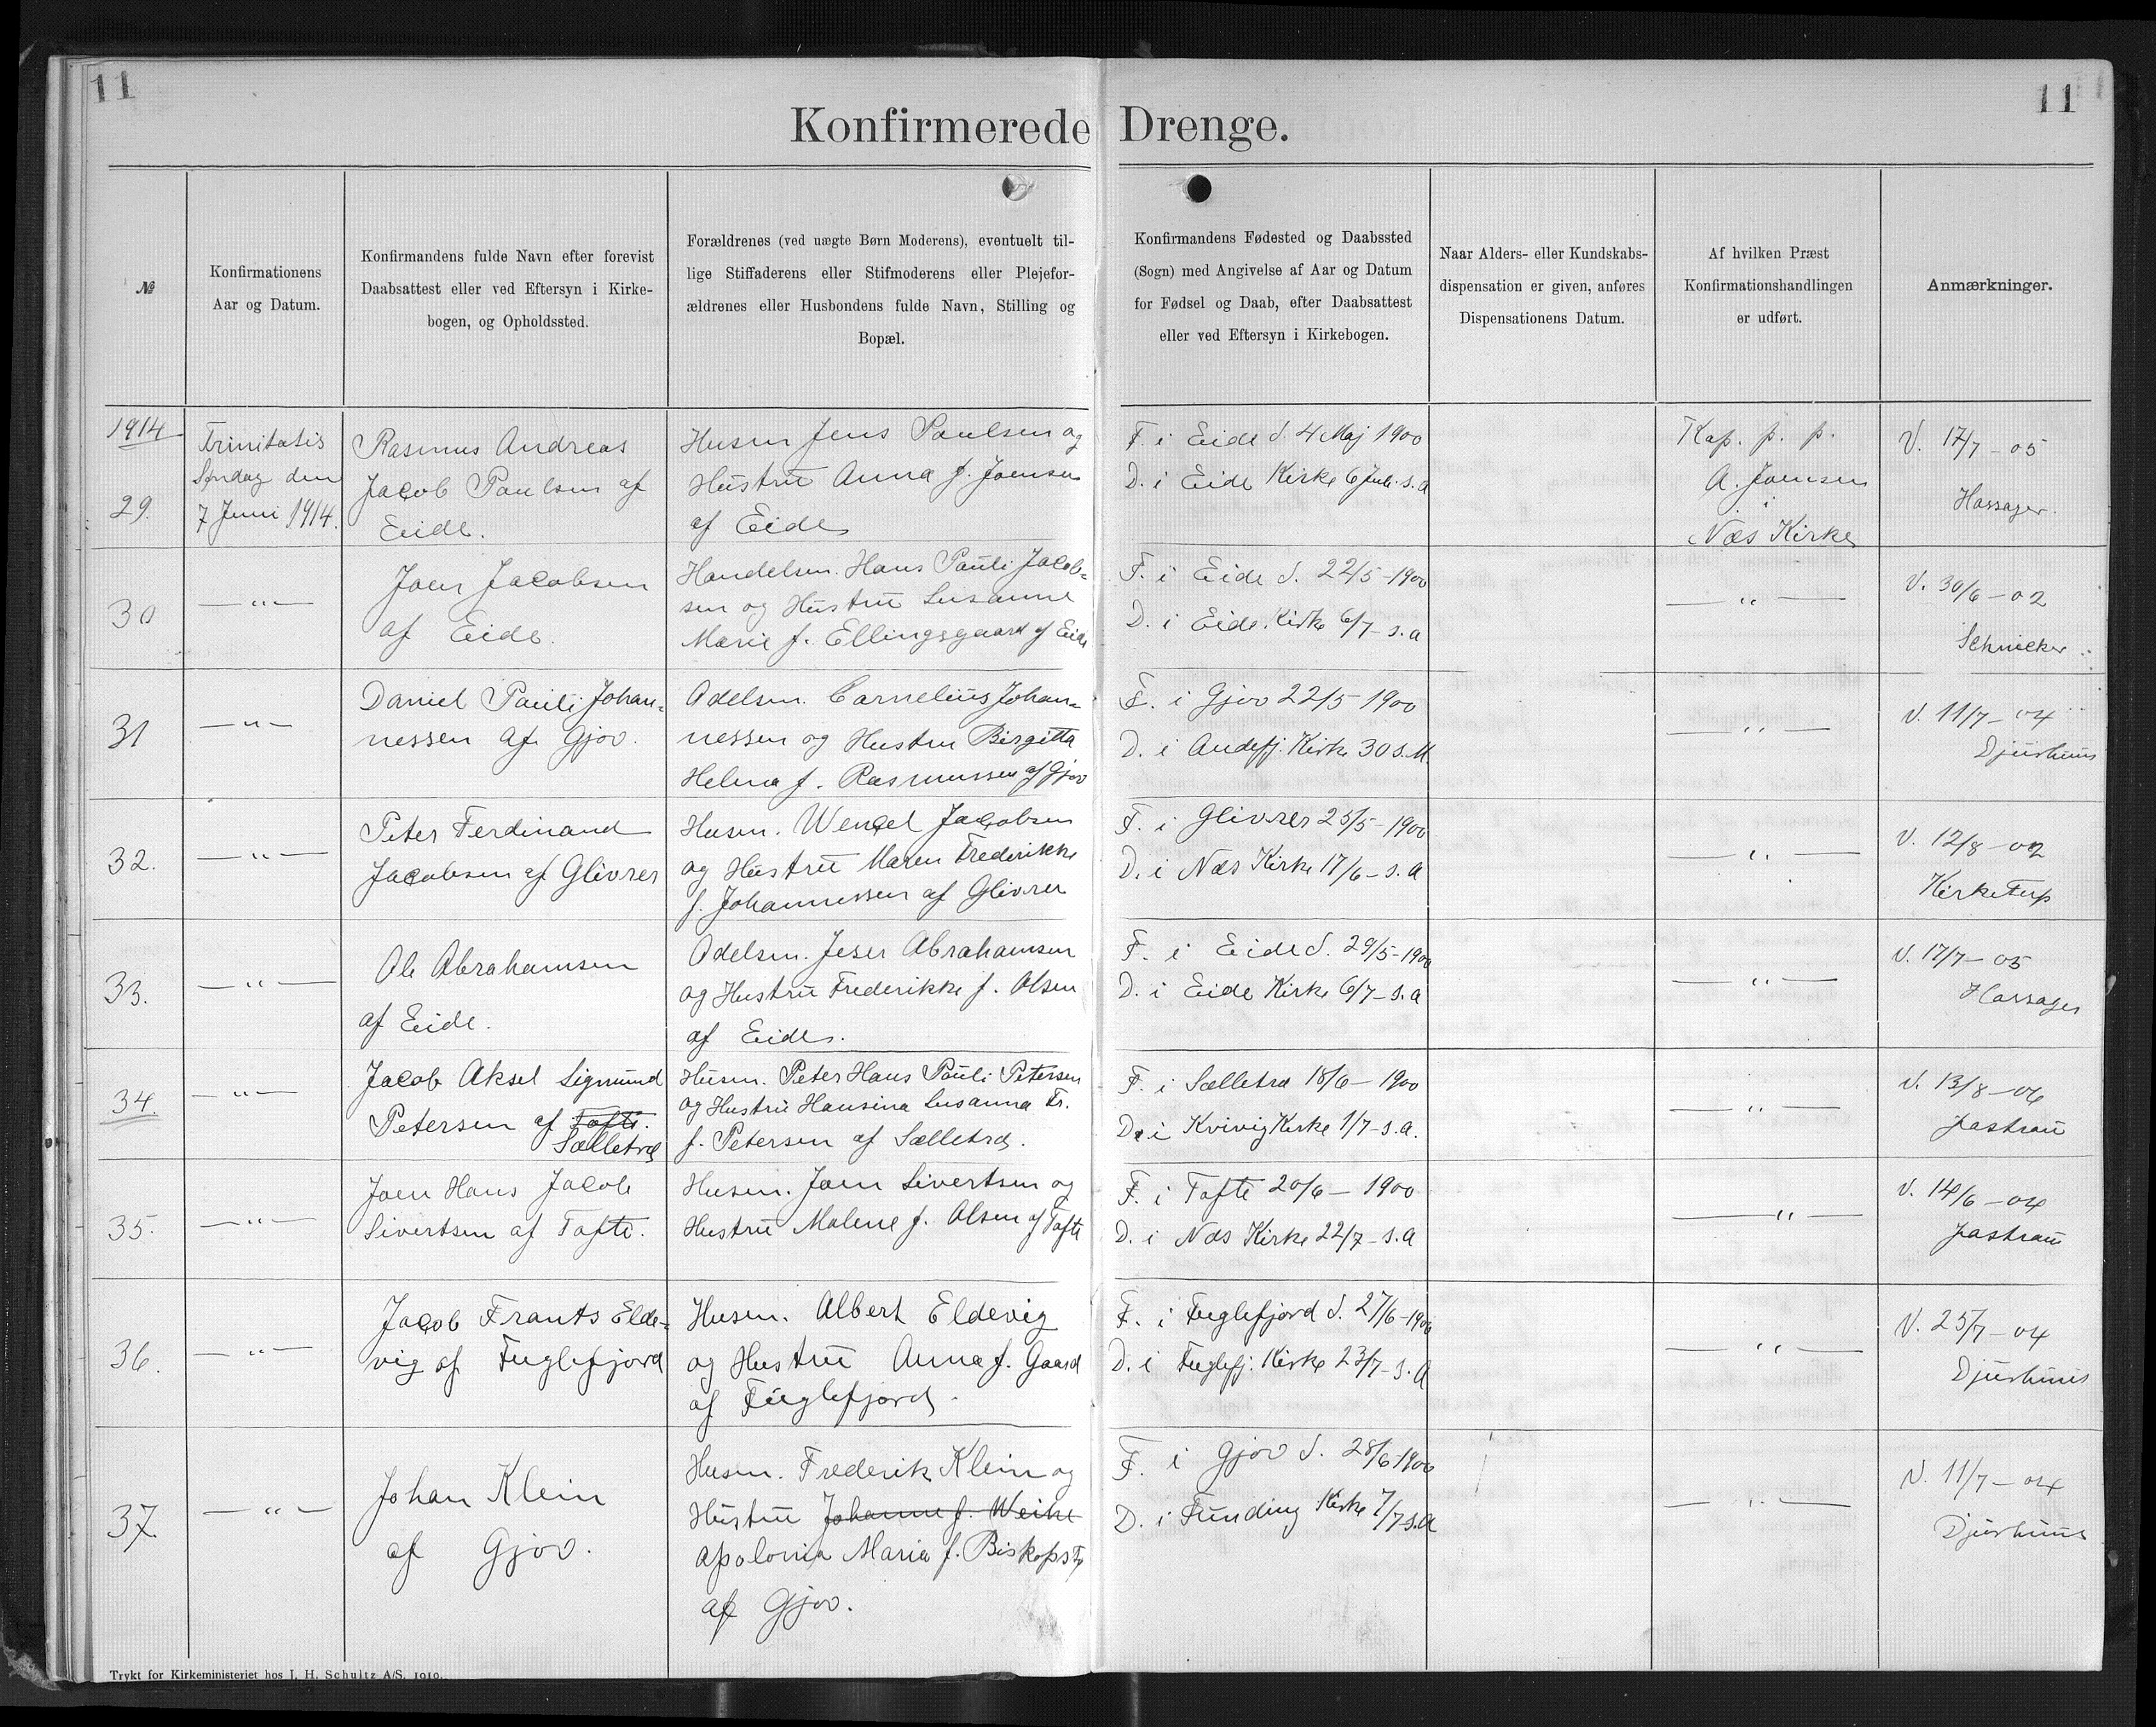 11
11
Konfirmerede Drenge.
№
Konfirmationens
Aar og Datum.
Konfirmandens fulde Navn efter forevist
Daabsattest eller ved Eftersyn i Kirke-
bogen, og Opholdssted.
Forældrenes (ved uægte Børn Moderens), eventuelt til-
lige Stiffaderens eller Stifmoderens eller Plejefor-
ældrenes eller Husbondens fulde Navn, Stilling og
Bopæl.
Konfirmandens Fødested og Daabssted
(Sogn) med Angivelse af Aar og Datum
for Fødsel og Daab, efter Daabsattest
eller ved Eftersyn i Kirkebogen.
Naar Alders- eller Kundskabs-
dispensation er given, anføres
Dispensationens Datum.
Af hvilken Præst
Konfirmationshandlingen
er udført.
Anmærkninger.
1914
29.
Trinitatis
Søndag den
7 Juni 1914.
Rasmus Andreas
Jacob Poulsen af
Eide.
Husm Jens Poulsen og
Hustru Anna f. Joensen
af Eide
F. i Eide d. 4 Maj 1900
D. i Eide Kirke 6 Juli s.A
Kap. p. p.
A. Joensen
i
Næs Kirke
V. 17/7 - 05
Hassager.
30
— " —
Joen Jacobsen
af Eide.
Handelsm. Hans Pauli Jacob=
sen og Hustru Susanne
Marie f. Ellingsgaard af Eide
F. i Eide d. 22/5 - 1900
D. i Eide Kirke 6/7 - s.a
— " —
V. 30/6 - 02
31
— " —
Daniel Pauli Johan=
nessen af Gjov.
Odelsm. Cornelius Johan=
nessen og Hustru Birgitta
Helena f. Rasmussen af Gjov
F. i Gjov 22/5 1900
D. i Andefj. Kirke 30 s.M
— " —
V. 11/7 - 04
Djurhuus
32.
— " —
Peter Ferdinand
Jacobsen af Glivrer
Husm. Wenzel Jacobsen
og Hustru Maren Frederikke
f. Johannessen af Glivrer
F. i Glivrer 25/5 - 1900
D. i Næs Kirke 17/6 - s.A
— " —
V. 12/8 - 02
Kirketerp
33.
— " —
Ole Abrahamsen
af Eide.
Odelsm. Jeser Abrahamsen
og Hustru Frederikke f. Olsen
af Eide.
F. i Eide d. 29/5 - 1900
D. i Eide Kirke 6/7 - s.a
— " —
V. 17/7 - 05
Hassager
34.
— " —
Jacob Aksel Sigmund
Petersen af Tofte.
Selletræ
Husm. Peter Hans Pauli Petersen
og Hustru Hansina Susanna Fr.
f. Petersen af Selletræ.
F. i Selletræ 18/6 - 1900
D. i Kvivig Kirke 1/7 - s.a.
— " —
V. 13/8 - 06
Jastrau
35.
— " —
Joen Hans Jacob
Sivertsen af Tofte.
Husm. Joen Sivertsen og
Hustru Malene f. Olsen af Tofte
F. i Tofte 20/6 - 1900
D. i Næs Kirke 22/7 - s.A
— " —
V. 14/6 - 04
Jastrau
36.
— " —
Jacob Frants Elde=
vig af Fuglefjord
Husm. Albert Eldevig
og Hustru Anna f. Gaard
af Fuglefjord.
F. i Fuglefjord d. 27/6 - 1900
D. i Fuglefj. Kirke 23/7 - s.A
— " —
V. 25/7 - 04
Djurhuus
37.
— " —
Johan Klein
af Gjov.
Husm. Frederik Klein og
Hustru Johanne f. Weihe
Apolonia Maria f. Biskopstø
af Gjov.
F. i Gjov d. 28/6 1900
D. i Funding Kirke 7/7 s.A
— " —
V. 11/7 - 04
Djurhuus
Trykt for Kirkeministeriet hos J. H. Schultz A/S. 1910.